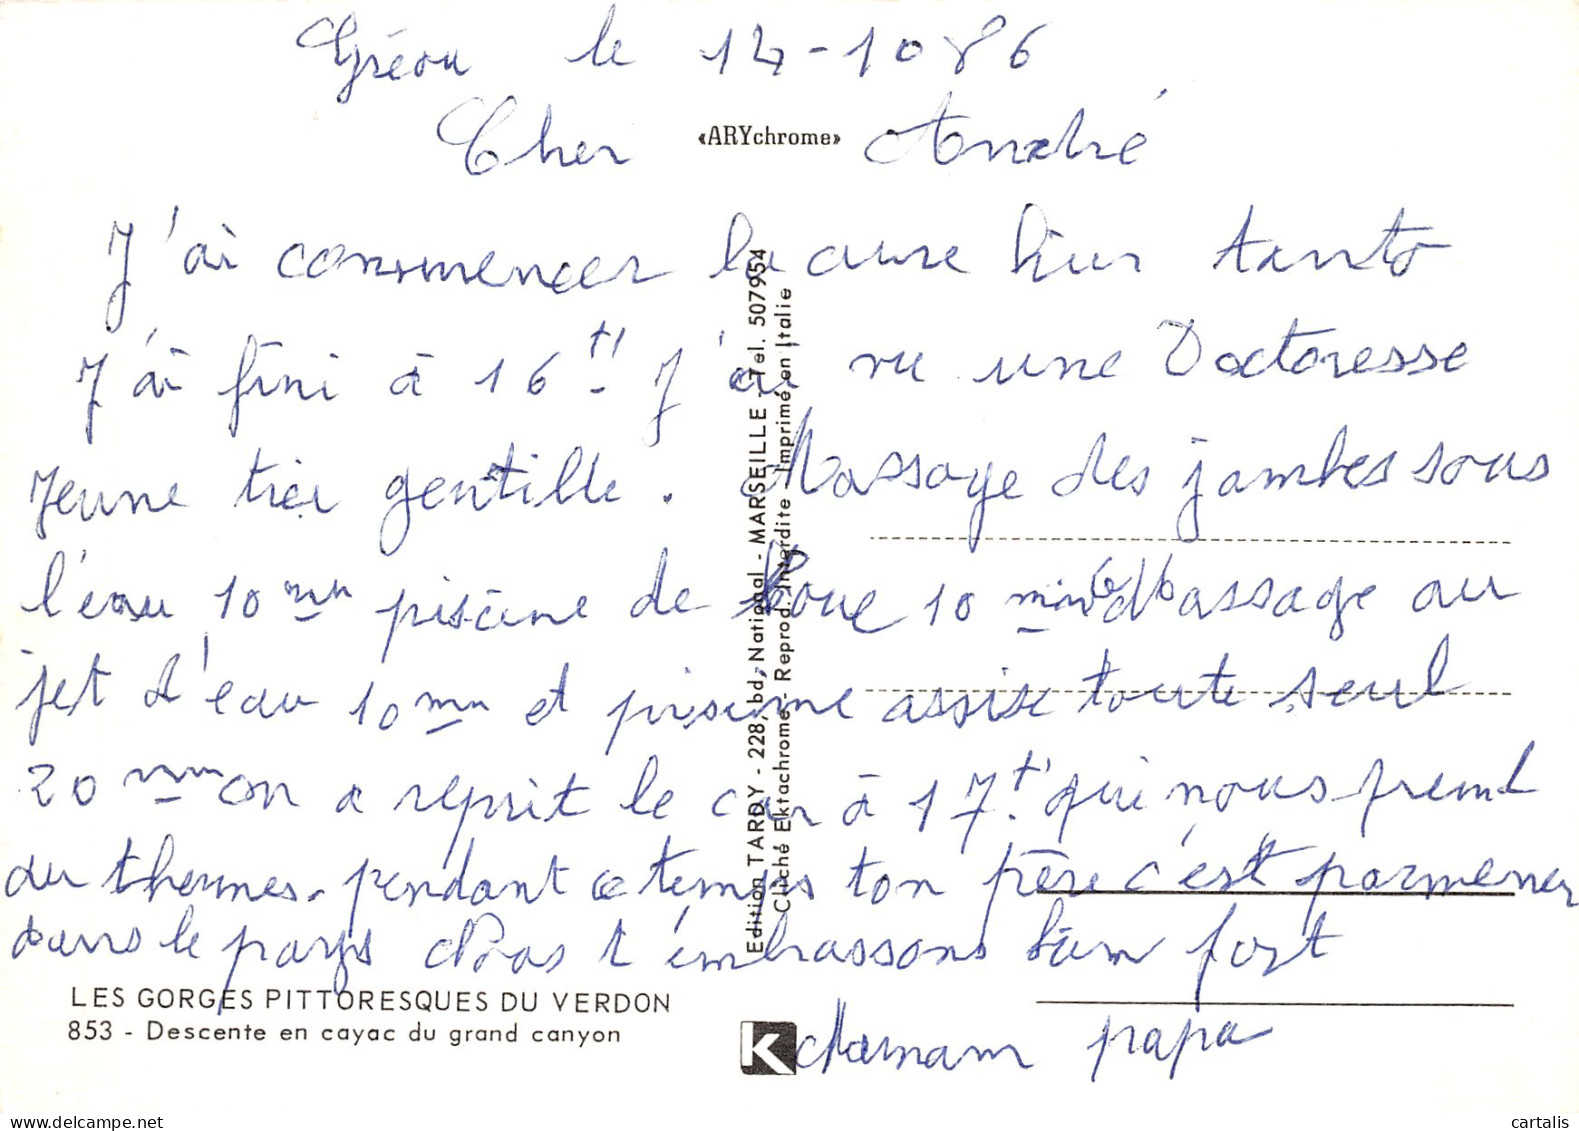 Gréou le 14-10 86
«ARYchrome»
Cher André
J'ai commencer la cure hier tanto
J'ai fini à 16 h J'ai vu une Doctoresse
Jeune trier gentille. Massage des jambes sous
l'eau 10 mn piscine de boue 10 min Massage au
jet d'eau 10 mn et piscine assise toute seul
20 mn on a reprit le car à 17 h qui nous prend
der thermes. pendant ce temps ton père c'est parmener
dans le pays Nous t'embrassons bien fort
Maman papa
LES GORGES PITTORESQUES DU VERDON
853 - Descente en cayac du grand canyon
Edition TARDY - 228, bd. National - MARSEILLE - Tel. 507954
Cliché Ektachrome - Reprod. Interdite Imprimé en Italie
K
cartalis
www.delcampe.net